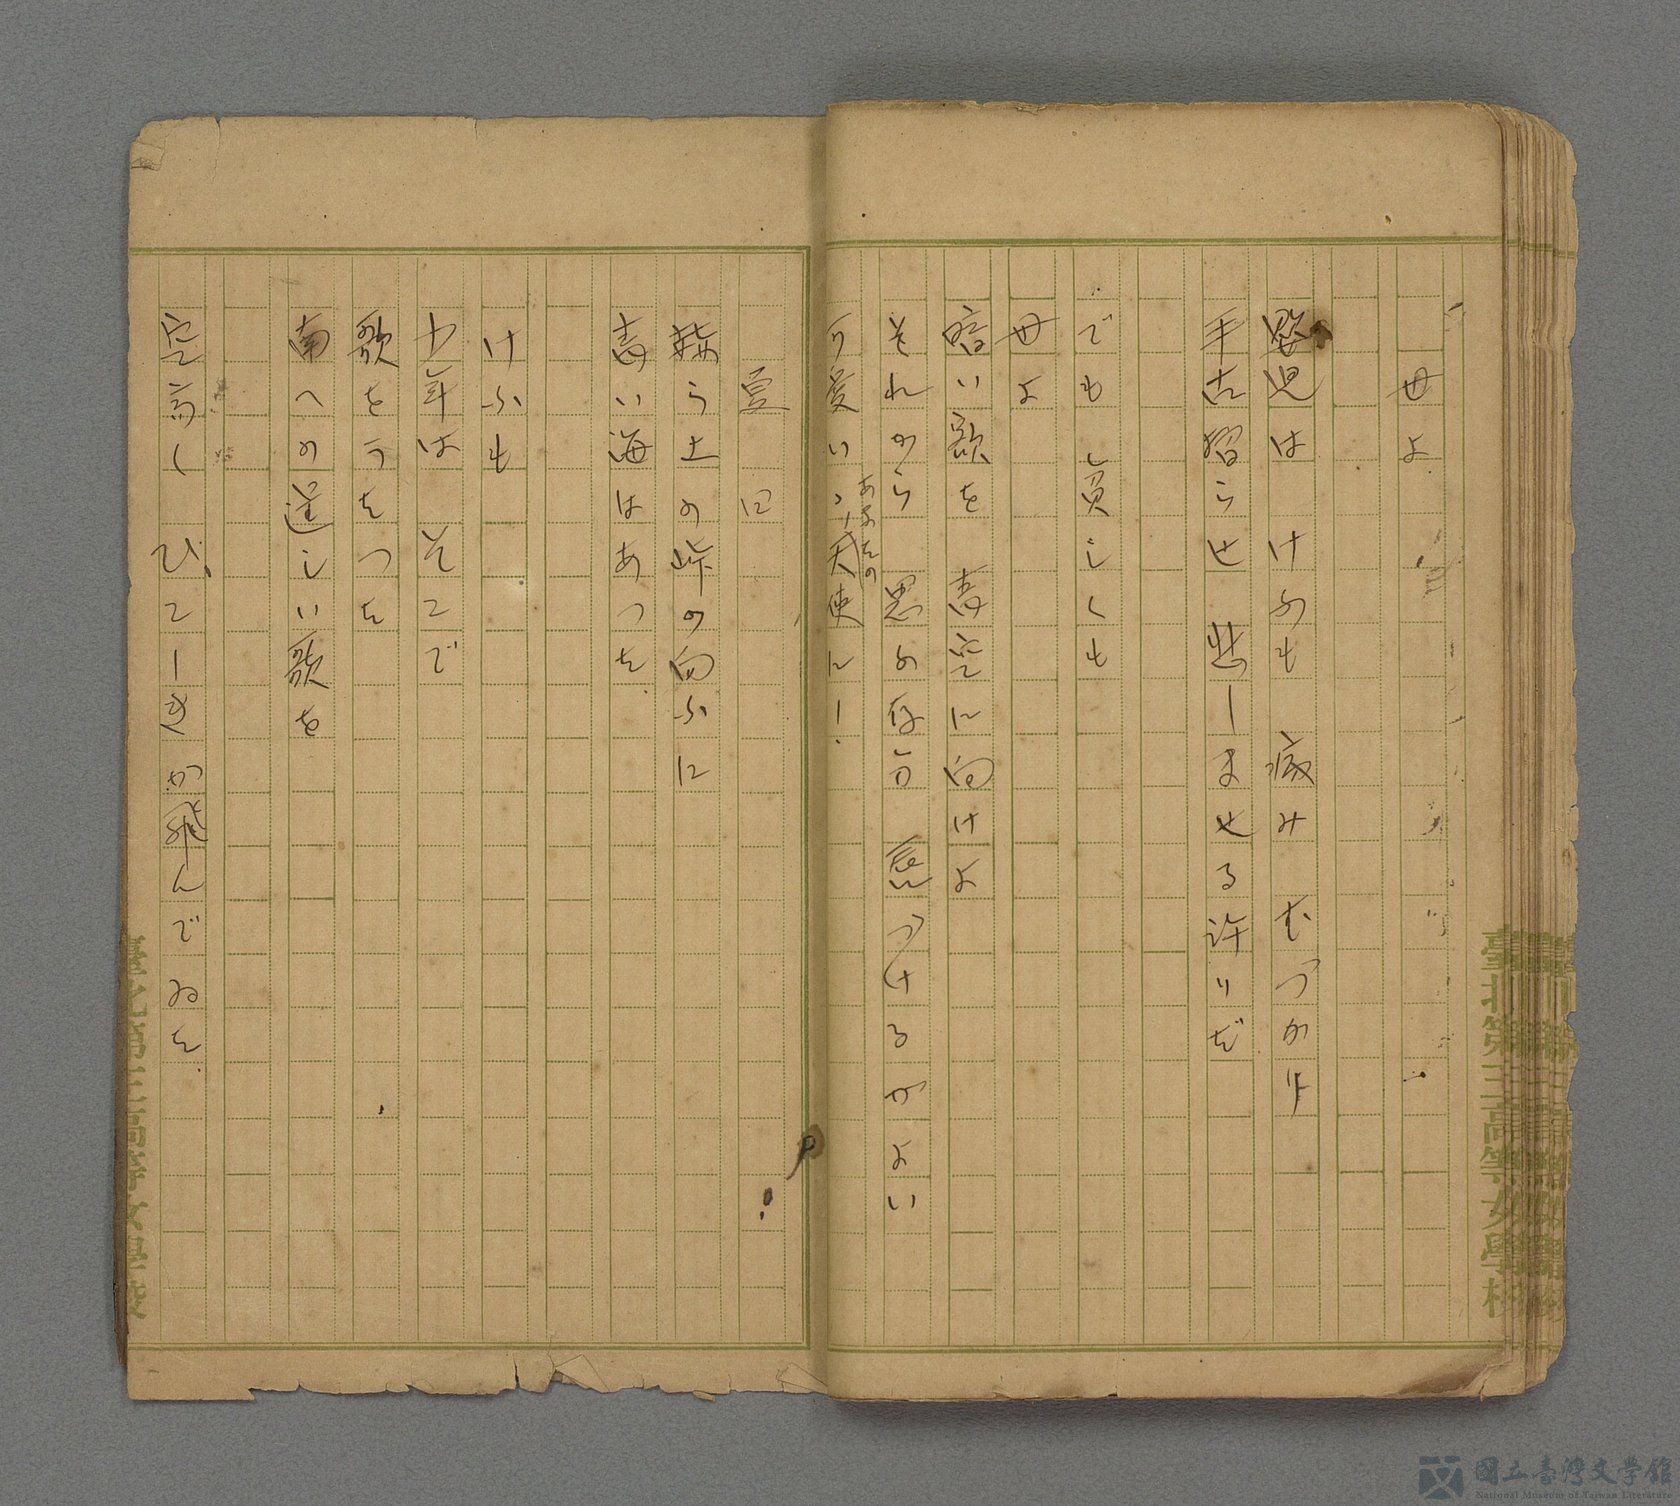 母よ
愚児は けふも 痛み むづかり
手古摺らせ 悲しませる許りだ
でも 貧しくも
母よ
暗い歌を 青空に向けよ
それから 思ふ存分 乳つけるがよい
あなたの
可愛い 天使に!
夏に
赭ら土の峠の向ふに
青い海はあつた.
けふも
少年は そこで
歌をうたつた
南への逞しい歌を
空高く ひこーきが飛んでゐた.
臺北第三高等女學校
國立臺灣文學館
National Museum of Taiwan Literature